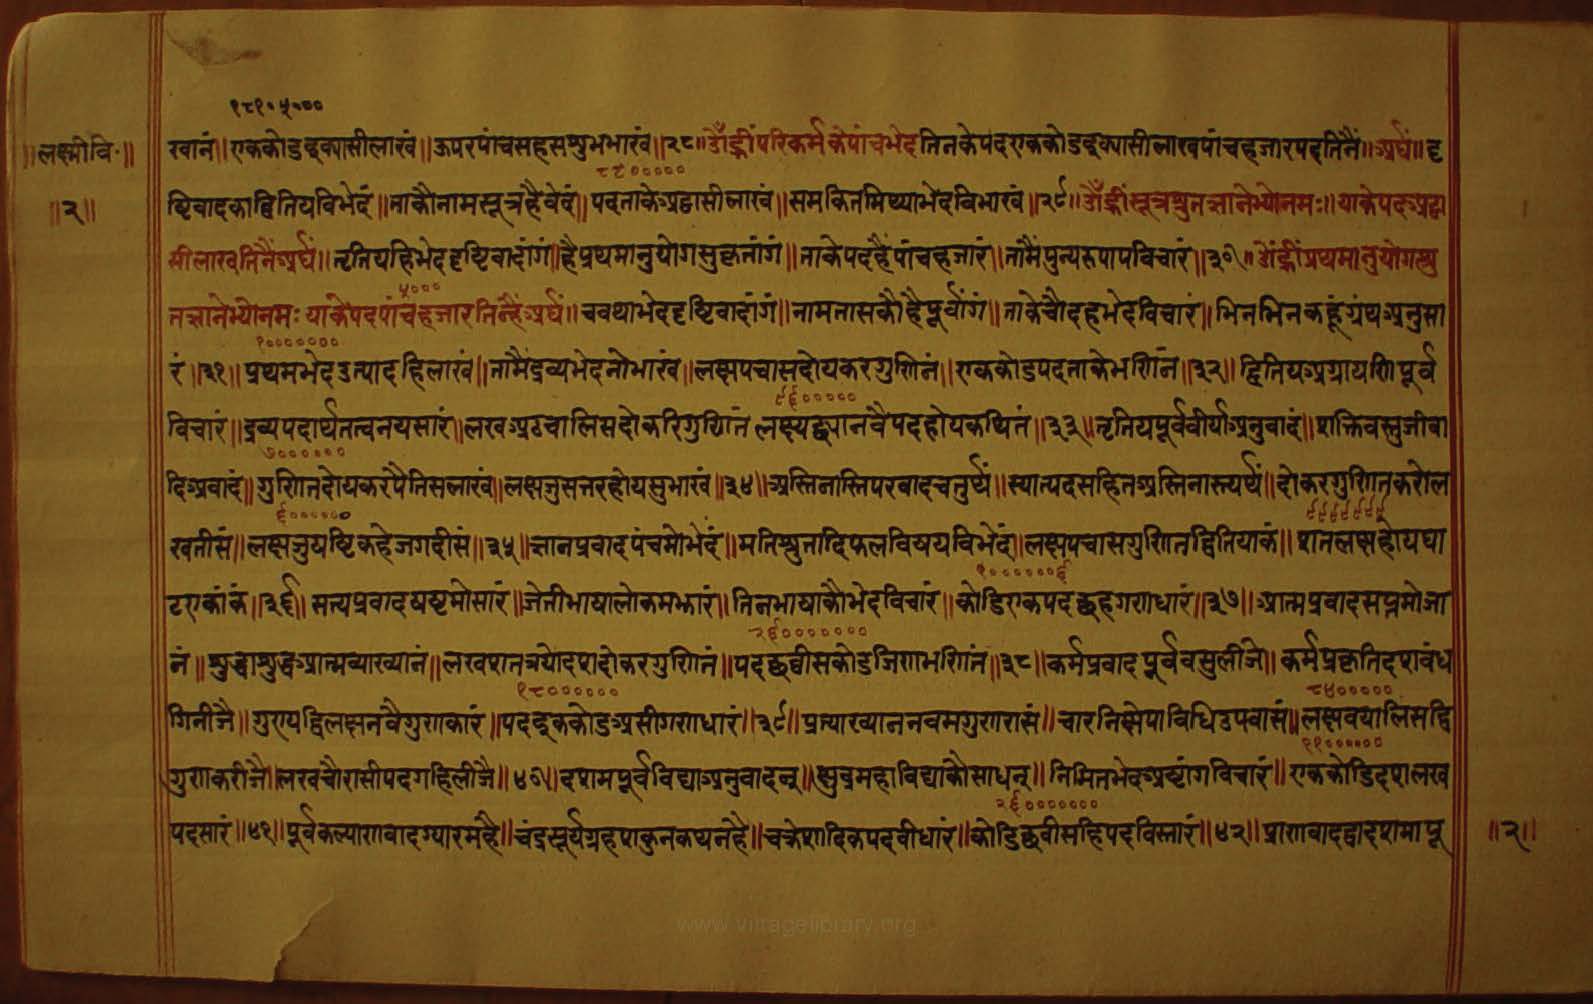 १८१०५०००
॥लक्ष्मीवि॰॥ खानं॥ एककोडइक्यासीलाखं॥ ऊपरपांचसहसशुभभाखं॥२८॥ॐह्रींपरिकर्मकेपांचभेदतिनकेपदएककोडइक्यासीलाखपांचहजारपदतिनैं॥अर्घं॥ दृ
८८०००००
॥२॥ ष्टिवादकाद्वितियविभेदं॥ ताकौनामसूत्रहैवेदं॥ पदताकेअठ्ठासीलाखं॥ समकितमिथ्याभेदविभाखं॥२९॥ॐह्रींसूत्रश्रुतज्ञानेभ्योनमः॥ याकेपदअठ्ठा
सीलाखतिनैंअर्घं॥ तृतियहिभेददृष्टिवादांगं॥ हैप्रथमानुयोगसुकृतांगं॥ ताकेपदहैंपांचहजारं॥ तामैंपुन्यरुपापविचारं॥३०॥ॐह्रींप्रथमानुयोगश्रु
५०००
तज्ञानेभ्योनमः याकेपदपांचहजारतिन्हैंअर्घं॥ चवथाभेददृष्टिवादांगं॥ नामतासकौहैपूर्वांगं॥ ताकेचौदहभेदविचारं॥ भिनभिनकहूंग्रंथअनुसा
१०००००००
रं॥३१॥ प्रथमभेदउत्पादहिलाखं॥ तामैंद्रव्यभेदनोभाखं॥ लक्षपचासदोयकरगुणितं॥ एककोडपदताकेभणितं॥३२॥ द्वितियअग्रायणिपूर्व
९६०००००
विचारं॥ द्रव्यपदार्थतत्वनयसारं॥ लखअठचालिसदोकरिगुणितं लक्ष्यछ्यानवैपदहोयकथितं॥३३॥ तृतियपूर्ववीर्याअनुवादं॥ शक्तिवस्तुजीवा
७००००००
दिअवादं॥ गुणितदोयकरपैंतिसलाखं॥ लक्षजुसत्तरहोयसुभाखं॥३४॥ अस्तिनास्तिपरवादचतुर्थं॥ स्यात्पदसहितअस्तिनास्त्यर्थं॥ दोकरगुणितकरोल
६०००००० ९९९९९९९
खतीसं॥ लक्षजुयष्टिकहेजगदीसं॥३५॥ ज्ञानप्रवादपंचमोभेदं॥ मतिश्रुतादिफलविषयविभेदं॥ लक्षपचासगुणितद्वितियाकं॥ शतलक्षहोयघा
१००००००६
टएकांकं॥३६॥ सत्यप्रवादषष्टमोसारं॥ जेतीभाषालोकमझारं॥ तिनभाषाकौभेदविचारं॥ कोडिएकपदछहगणधारं॥३७॥ आत्मप्रवादसप्तमोजा
२६०००००००
नं॥ शुद्धाशुद्धआत्मव्याख्यानं॥ लखशतत्रयोदशदोकरगुणितं॥ पदछवीसकोडजिणभणितं॥३८॥ कर्मप्रवादपूर्ववसुलीजे॥ कर्मप्रकृतिदशबंध
१८०००००० ८४०००००
गिनीजै॥ गुणयद्विलक्षनवैगुणाकारं॥ पदइककोडअसीगणधारं॥३९॥ प्रत्याख्याननवमगुणरासं॥ चारनिक्षेपाविधिउपवासं॥ लक्षबयालिसद्वि
११००००००
गुणाकरीजै॥ लखचौरासीपदगहिलीजै॥४०॥ दशमपूर्वविद्याअनुवादन्॥ क्षुद्रमहाविद्याकोसाधन्॥ निमितभेदअष्टांगविचारं॥ एककोडिदशलख
२६०००००००
पदसारं॥४१॥ पूर्वकल्याणवादग्यारमहै॥ चंद्रसूर्यग्रहशकुनकथनहै॥ चक्रेशादिकपदवीधारं॥ कोडिछवीसहिपदविस्तारं॥४२॥ प्राणवादद्वादशमापू ॥२॥
www.vitragelibrary.org